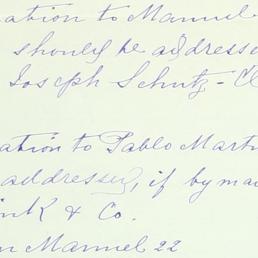 ation to Manuel
should be addresse
Joseph Schutz - C
ation to Pablo Mart
addressed, if by ma
ink & Co.
n Manuel 22